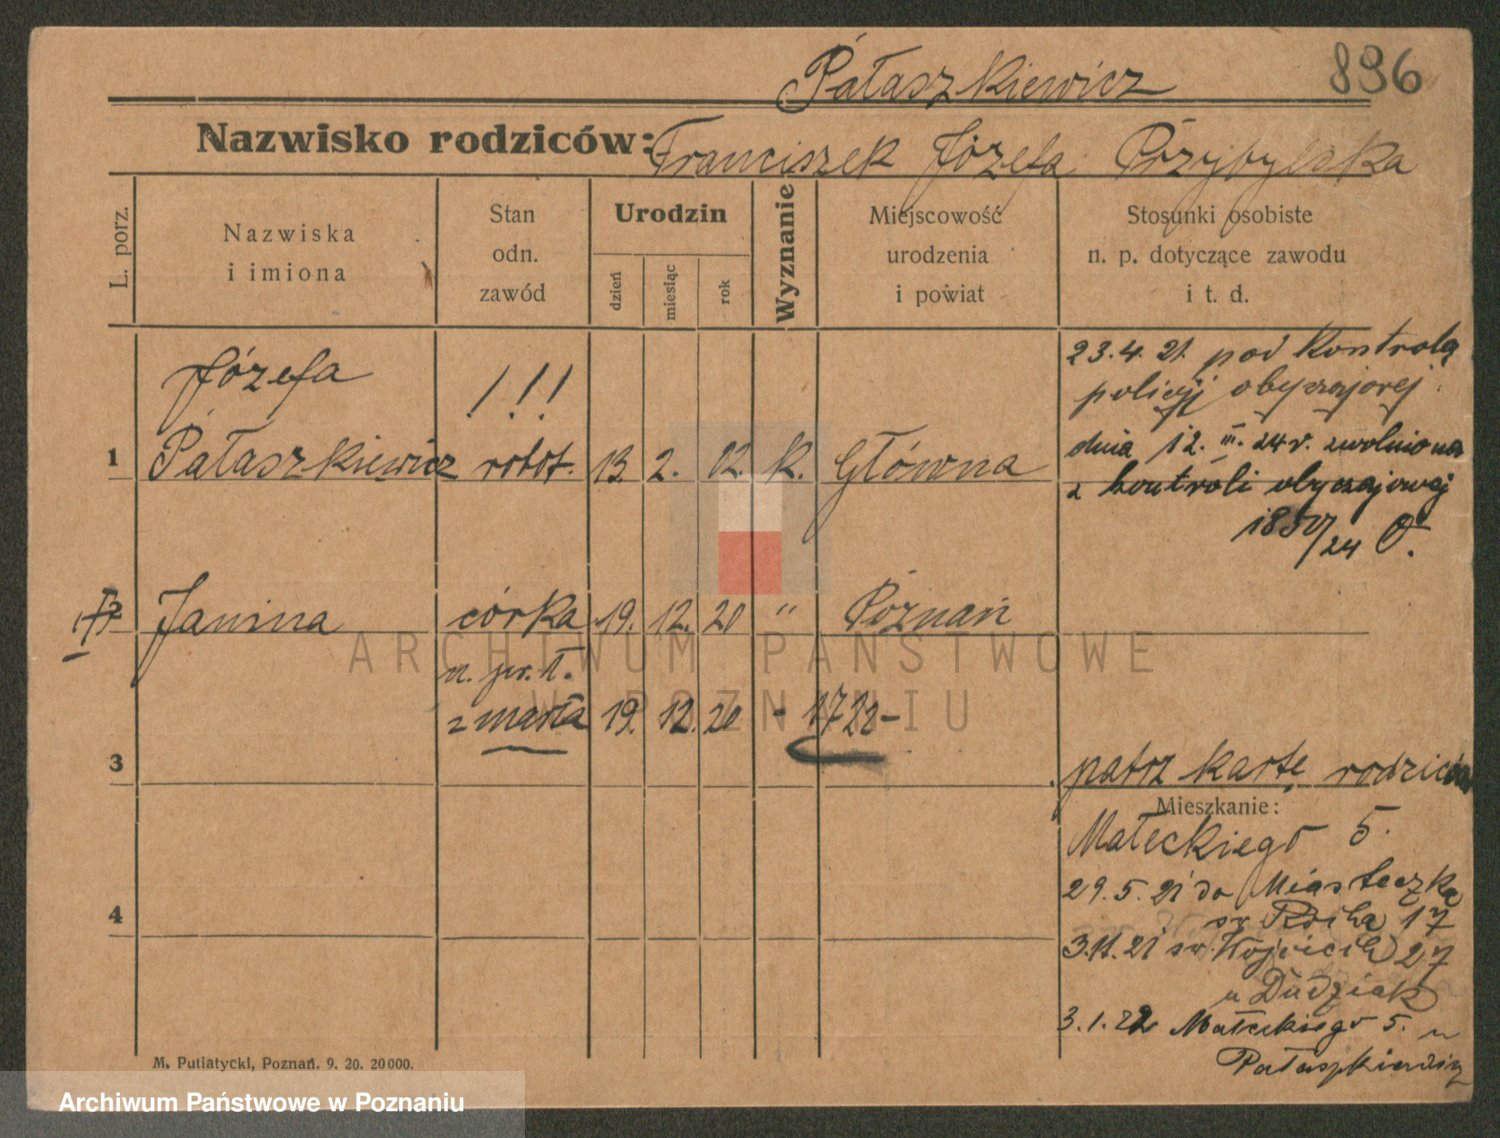 Pałaszkiewicz 896
Nazwisko rodziców: Franciszek Józefa Przybylska
L. porz.
Nazwiska
i imiona
Stan
odn.
zawód
Urodzin
dzień
miesiąc
rok
Wyznanie
Miejscowość
urodzenia
i powiat
Stosunki osobiste
n. p. dotyczące zawodu
i t. d.
Józefa !!!
1 Pałaszkiewicz robot. 13. 2. 02. K. Główna
23.4.21. pod Kontrolą
policyj obyczajowej.
dnia 12. III. 24 r. zwolniona
z kontroli obyczajowej
1850/24
2 Janina córka 19. 12. 20 " Poznań
zmarła 19. 12. 20 - 1722-
3
patrz kartę rodziców
Mieszkanie:
Małeckiego 5.
29.5.21 do Miasteczka
św. Rocha 17
3.11.21 św. Wojciech 27
u Dudziak
3.1.22 Małeckiego 5. u
Pałaszkiewicz
4
M. Putiatycki, Poznań. 9. 20. 20000.
ARCHIWUM PAŃSTWOWE
W POZNANIU
Archiwum Państwowe w Poznaniu